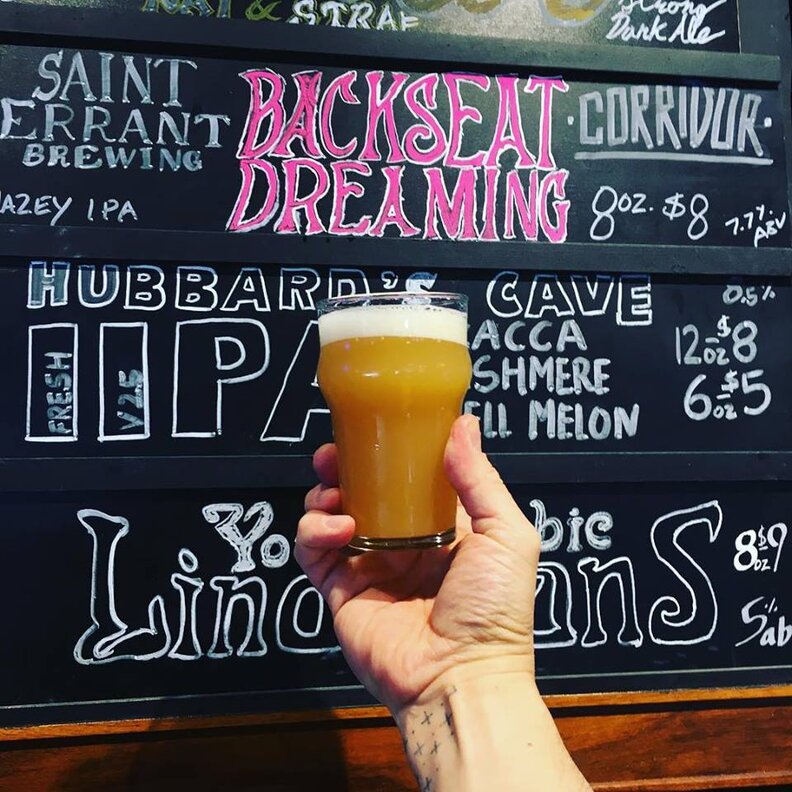 & STRAF
Strong
Dark Ale
SAINT
ERRANT
BREWING
AZEY IPA
BACKSEAT
DREAMING
· CORRIDOR ·
8oz. $8
7.7% ABV
HUBBARD'S CAVE
FRESH
V25
IIPA
ACCA
SHMERE
ELL MELON
12oz $8
6oz $5
Yo bic
Lind ans
8oz $9
5% ab